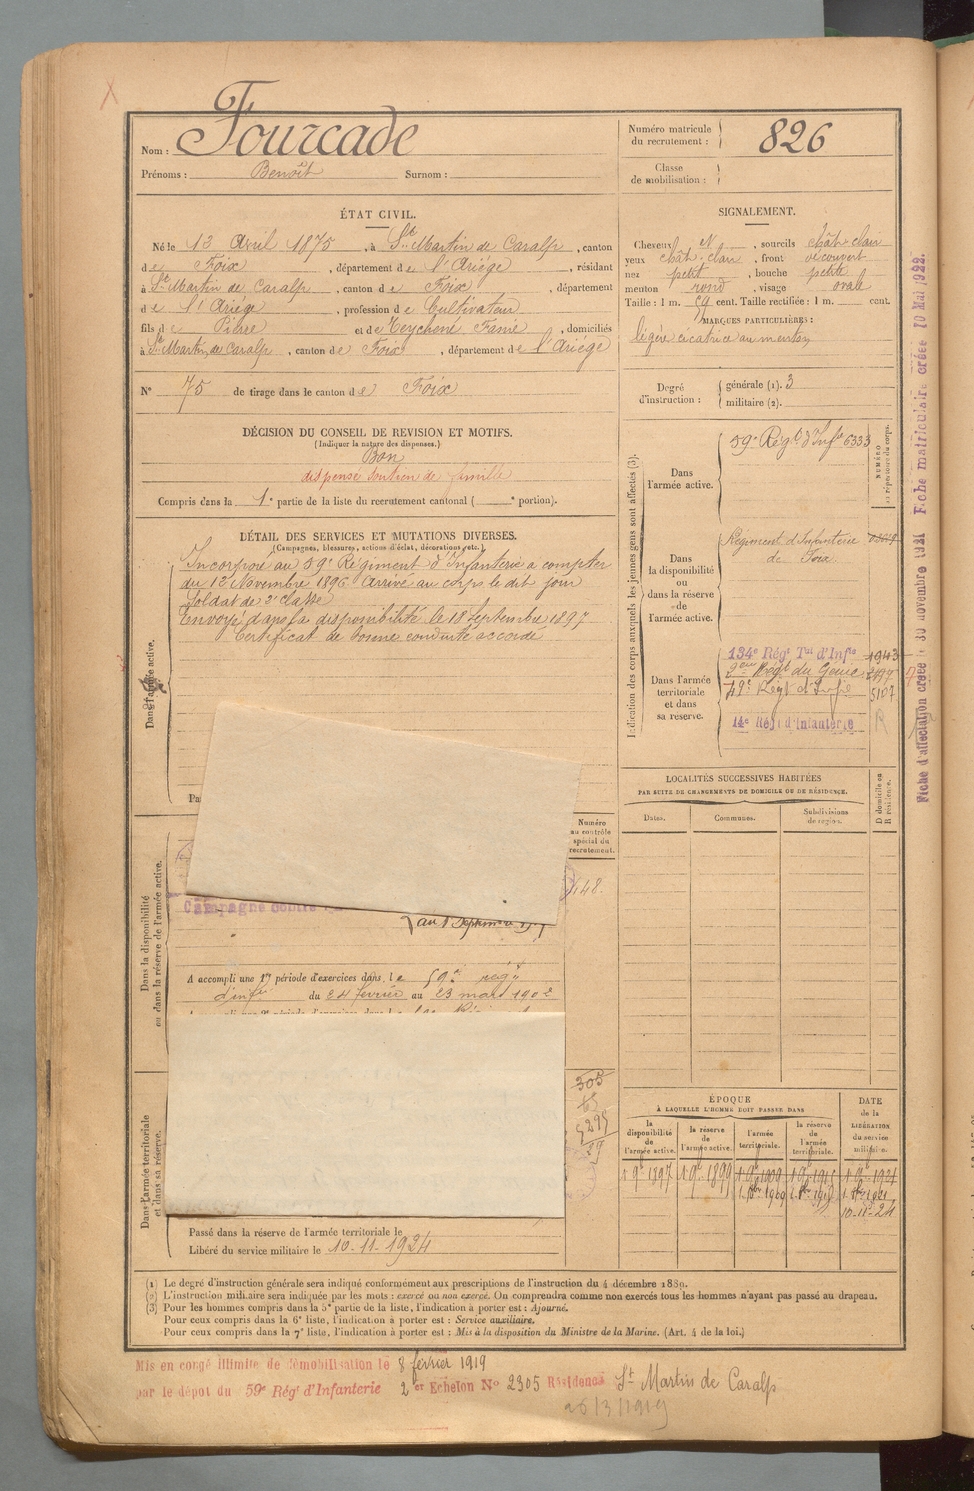 Nom : Fourcade
Prénoms : Benoît Surnom :
Numéro matricule du recrutement : 826
Classe de mobilisation :
ÉTAT CIVIL.
Né le 13 Avril 1875, à St Martin de Caralp, canton
de Foix, département de l'Ariége, résidant
à St Martin de Caralp, canton de Foix, département
de l'Ariége, profession de Cultivateur
fils de Pierre et de Teychené Fanie, domiciliés
à St Martin de Caralp, canton de Foix, département de l'Ariége
N° 75 de tirage dans le canton de Foix
DÉCISION DU CONSEIL DE REVISION ET MOTIFS.
(Indiquer la nature des dispenses.)
Bon
dispensé soutien de famille
Compris dans la 1e partie de la liste du recrutement cantonal ( e portion).
DÉTAIL DES SERVICES ET MUTATIONS DIVERSES.
(Campagnes, blessures, actions d'éclat, décorations, etc.)
Dans l'armée active.
Incorporé au 59e Régiment d'Infanterie à compter
du 12 Novembre 1896 Arrivé au corps le dit jour
Soldat de 2e classe
Envoyé dans la disponibilité le 18 Septembre 1897
Certificat de bonne conduite accordé
Numéro au contrôle spécial du recrutement.
148.
Dans la disponibilité ou dans la réserve de l'armée active.
Campagne contre
A accompli une 1re période d'exercices dans le 59e régt
d'infie du 24 février au 23 mars 1902
Dans l'armée territoriale et dans sa réserve.
305
Passé dans la réserve de l'armée territoriale le
Libéré du service militaire le 10-11-1924
SIGNALEMENT.
Cheveux N, sourcils chât-clair
yeux chât-clair, front découvert
nez petit, bouche petite
menton rond, visage ovale
Taille : 1 m. 59 cent. Taille rectifiée : 1 m. cent.
MARQUES PARTICULIÈRES :
légère cicatrice au menton
Degré d'instruction : générale (1). 3
militaire (2).
Indication des corps auxquels les jeunes gens sont affectés (3).
NUMÉRO au répertoire du corps.
Dans l'armée active.
59e Régt d'Infie 6333
Dans la disponibilité ou dans la réserve de l'armée active.
Régiment d'Infanterie
de Foix
Dans l'armée territoriale et dans sa réserve.
134e Régt Tal d'Infie 1943
2eme Régt du Génie
Régt d'Infie 5107
14e Régt d'Infanterie
LOCALITÉS SUCCESSIVES HABITÉES
PAR SUITE DE CHANGEMENTS DE DOMICILE OU DE RÉSIDENCE.
Dates. Communes. Subdivisions de région. D domicile ou R résidence.
ÉPOQUE
À LAQUELLE L'HOMME DOIT PASSER DANS
la disponibilité de l'armée active.
la réserve de l'armée active.
l'armée territoriale.
la réserve de l'armée territoriale.
DATE de la LIBÉRATION du service militaire.
10-11-24
(1) Le degré d'instruction générale sera indiqué conformément aux prescriptions de l'instruction du 4 décembre 1889.
(2) L'instruction militaire sera indiquée par les mots : exercé ou non exercé. On comprendra comme non exercés tous les hommes n'ayant pas passé au drapeau.
(3) Pour les hommes compris dans la 5e partie de la liste, l'indication à porter est : Ajourné.
Pour ceux compris dans la 6e liste, l'indication à porter est : Service auxiliaire.
Pour ceux compris dans la 7e liste, l'indication à porter est : Mis à la disposition du Ministre de la Marine. (Art. 4 de la loi.)
Mis en congé illimité de démobilisation le 8 février 1919
par le dépôt du 59e Régt d'Infanterie 2 er Echelon N° 2305 Résidence St Martin de Caralp
26/3/1919
Fiche d'affectation créée le 30 novembre 1921 Fiche matriculaire créée 10 Mai 1922.